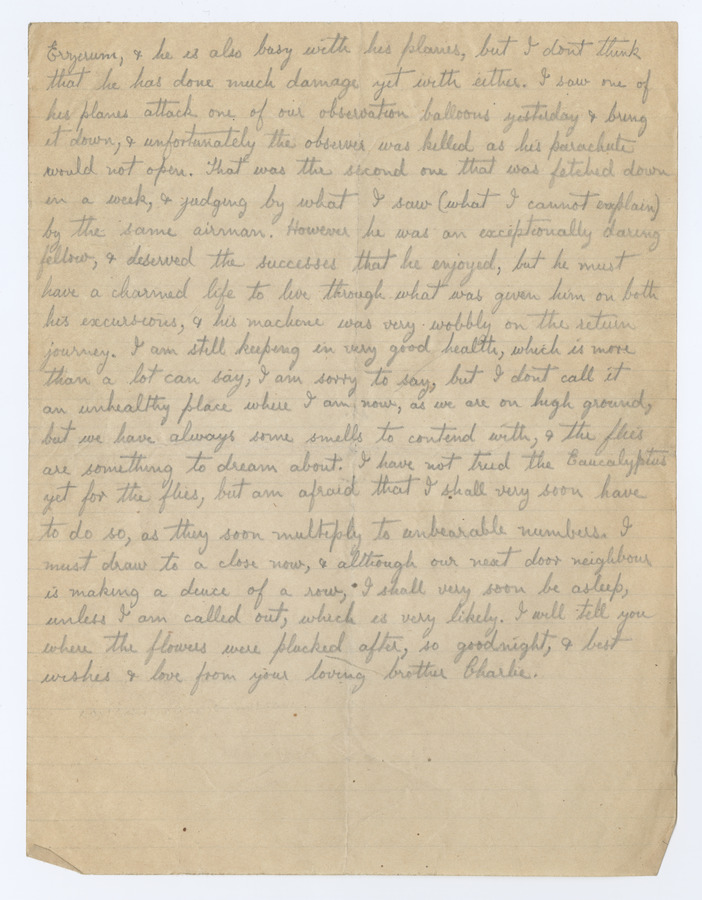 Erzerum, & he is also busy with his planes, but I dont think
that he has done much damage yet with either. I saw one of
his planes attack one of our observation balloons yesterday & bring
it down, & unfortunately the observer was killed as his parachute
would not open. That was the second one that was fetched down
in a week, & judging by what I saw (what I cannot explain)
by the same airman. However he was an exciptionally daring
fellow, & deserved the successes that he enjoyed, but he must
have a charmed life to live through what was given him on both
his excursions, & his machine was very wobbly on the return
journey. I am still keeping in very good health, which is more
than a lot can say, I am sorry to say, but I dont call it
an unhealthy place where I am now, as we are on high ground,
but we have always some smells to contend with, & the flies
are something to dream about. I have not tried the Eaucalyptus
yet for the flies, but am afraid that I shall very soon have
to do so, as they soon multiply to unbearable numbers. I
must draw to a close now, & although our next door neighbour
is making a deuce of a row, I shall very soon be asleep,
unless I am called out, which is very likely. I will tell you
where the flowers were plucked after, so goodnight, & best
wishes & love from your loving brother Charlie.